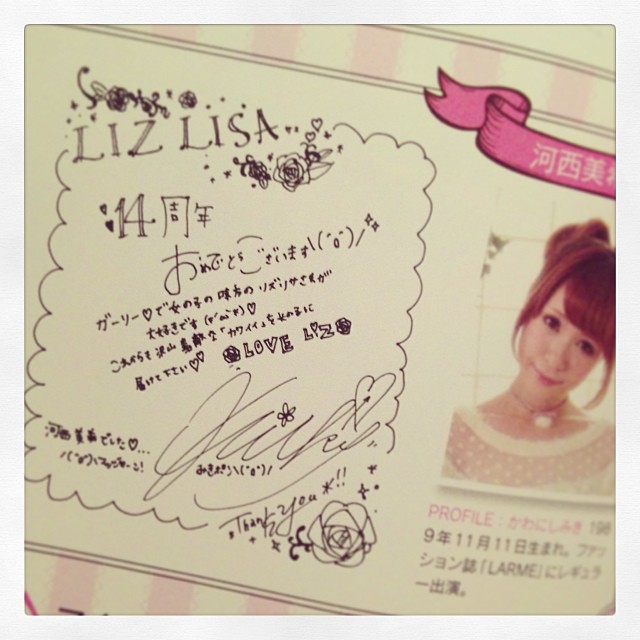 LIZ LISA
14周年
おめでとうございます\(^o^)/
ガーリー♡で女の子の味方のリズリサさんが
大好きです♡
これからも沢山素敵な「カワイイ」を女の子に
届けて下さい♡♡ LOVE LIZ
河西美希でした♡...
みきポン\(^o^)/
Thank you*!!
河西美希
PROFILE：かわにしみき 198
9年11月11日生まれ。ファッ
ション誌「LARME」にレギュラ
ー出演。